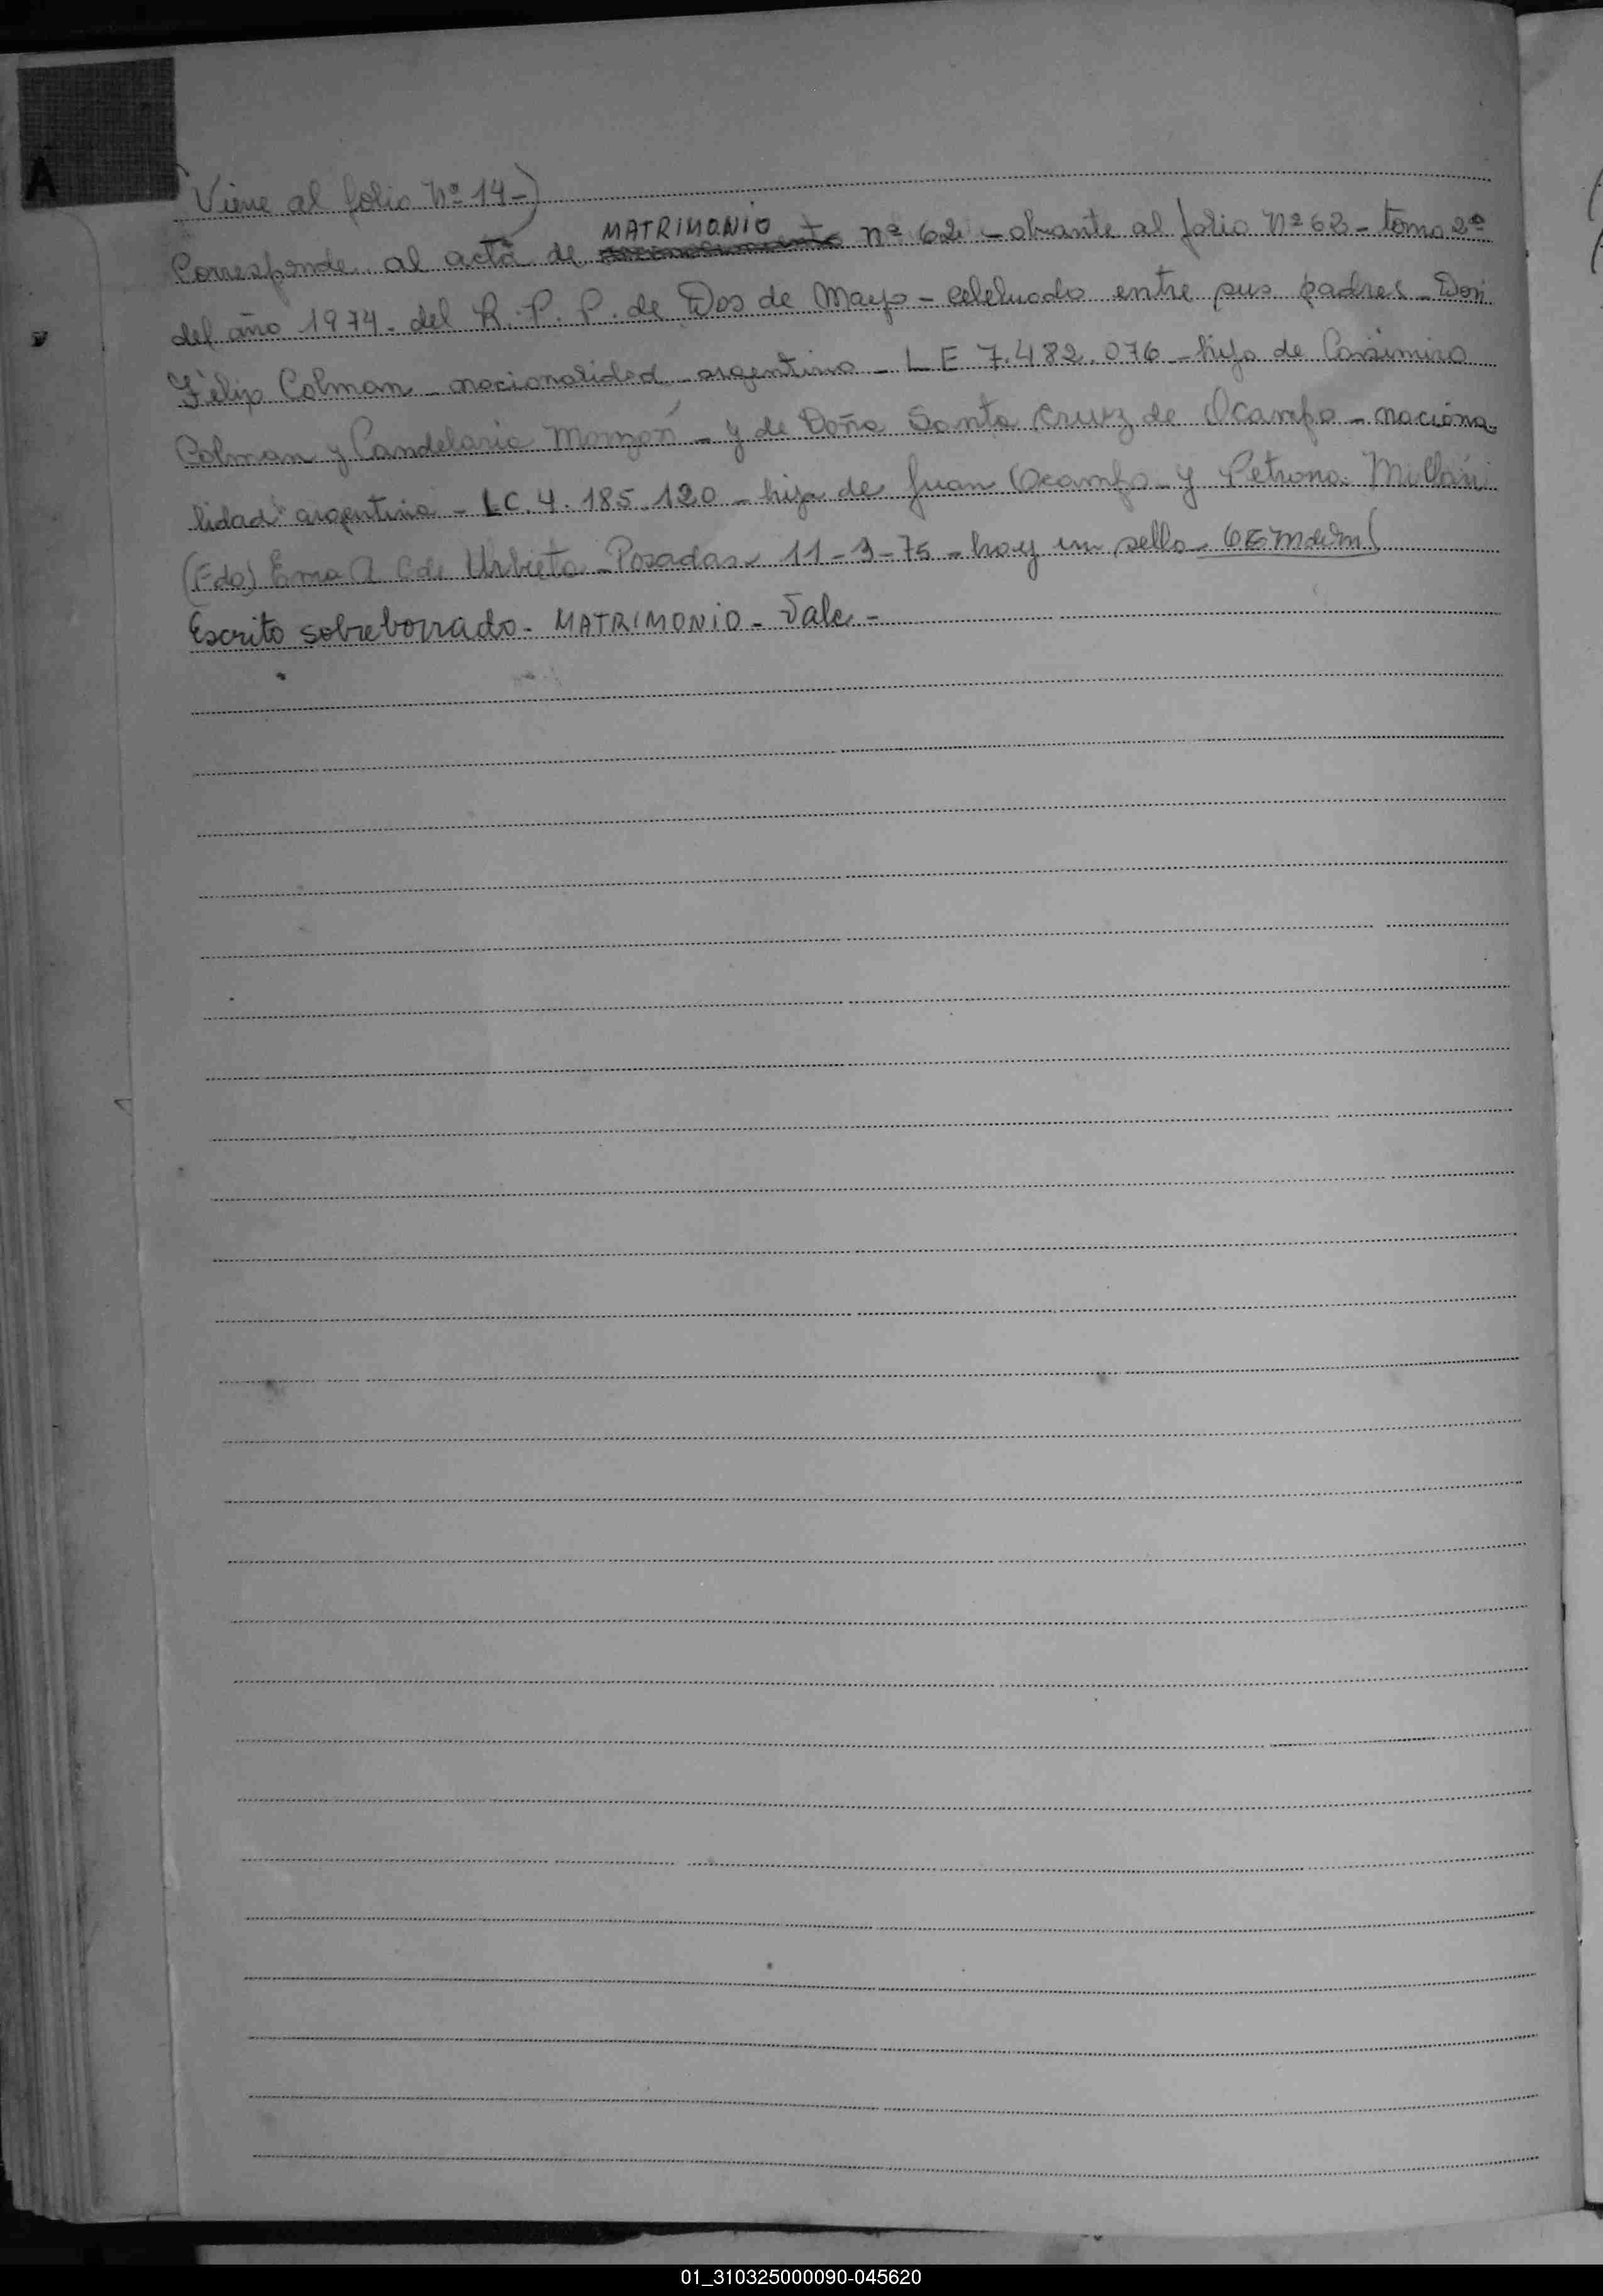 A
(Viene al folio Nº 14-)
MATRIMONIO
Corresponde al acta de nº 62 - obrante al folio Nº 63 - tomo 2º
del año 1974 - del R. P. P. de Dos de Mayo - celebrado entre sus padres - Don
Félix Colman - nacionalidad argentina - L E 7.482.076 - hijo de Casimiro
Colman y Candelaria Monzón - y de Doña Santa Cruz de Ocampo - naciona-
lidad argentina - LC. 4.185.120 - hija de Juan Ocampo - y Petrona Millán
(Fdo) Ema A C de Urbieta - Posadas 11-3-75 - hay un sello -
Escrito sobreborrado - MATRIMONIO - Vale -
01_310325000090-045620